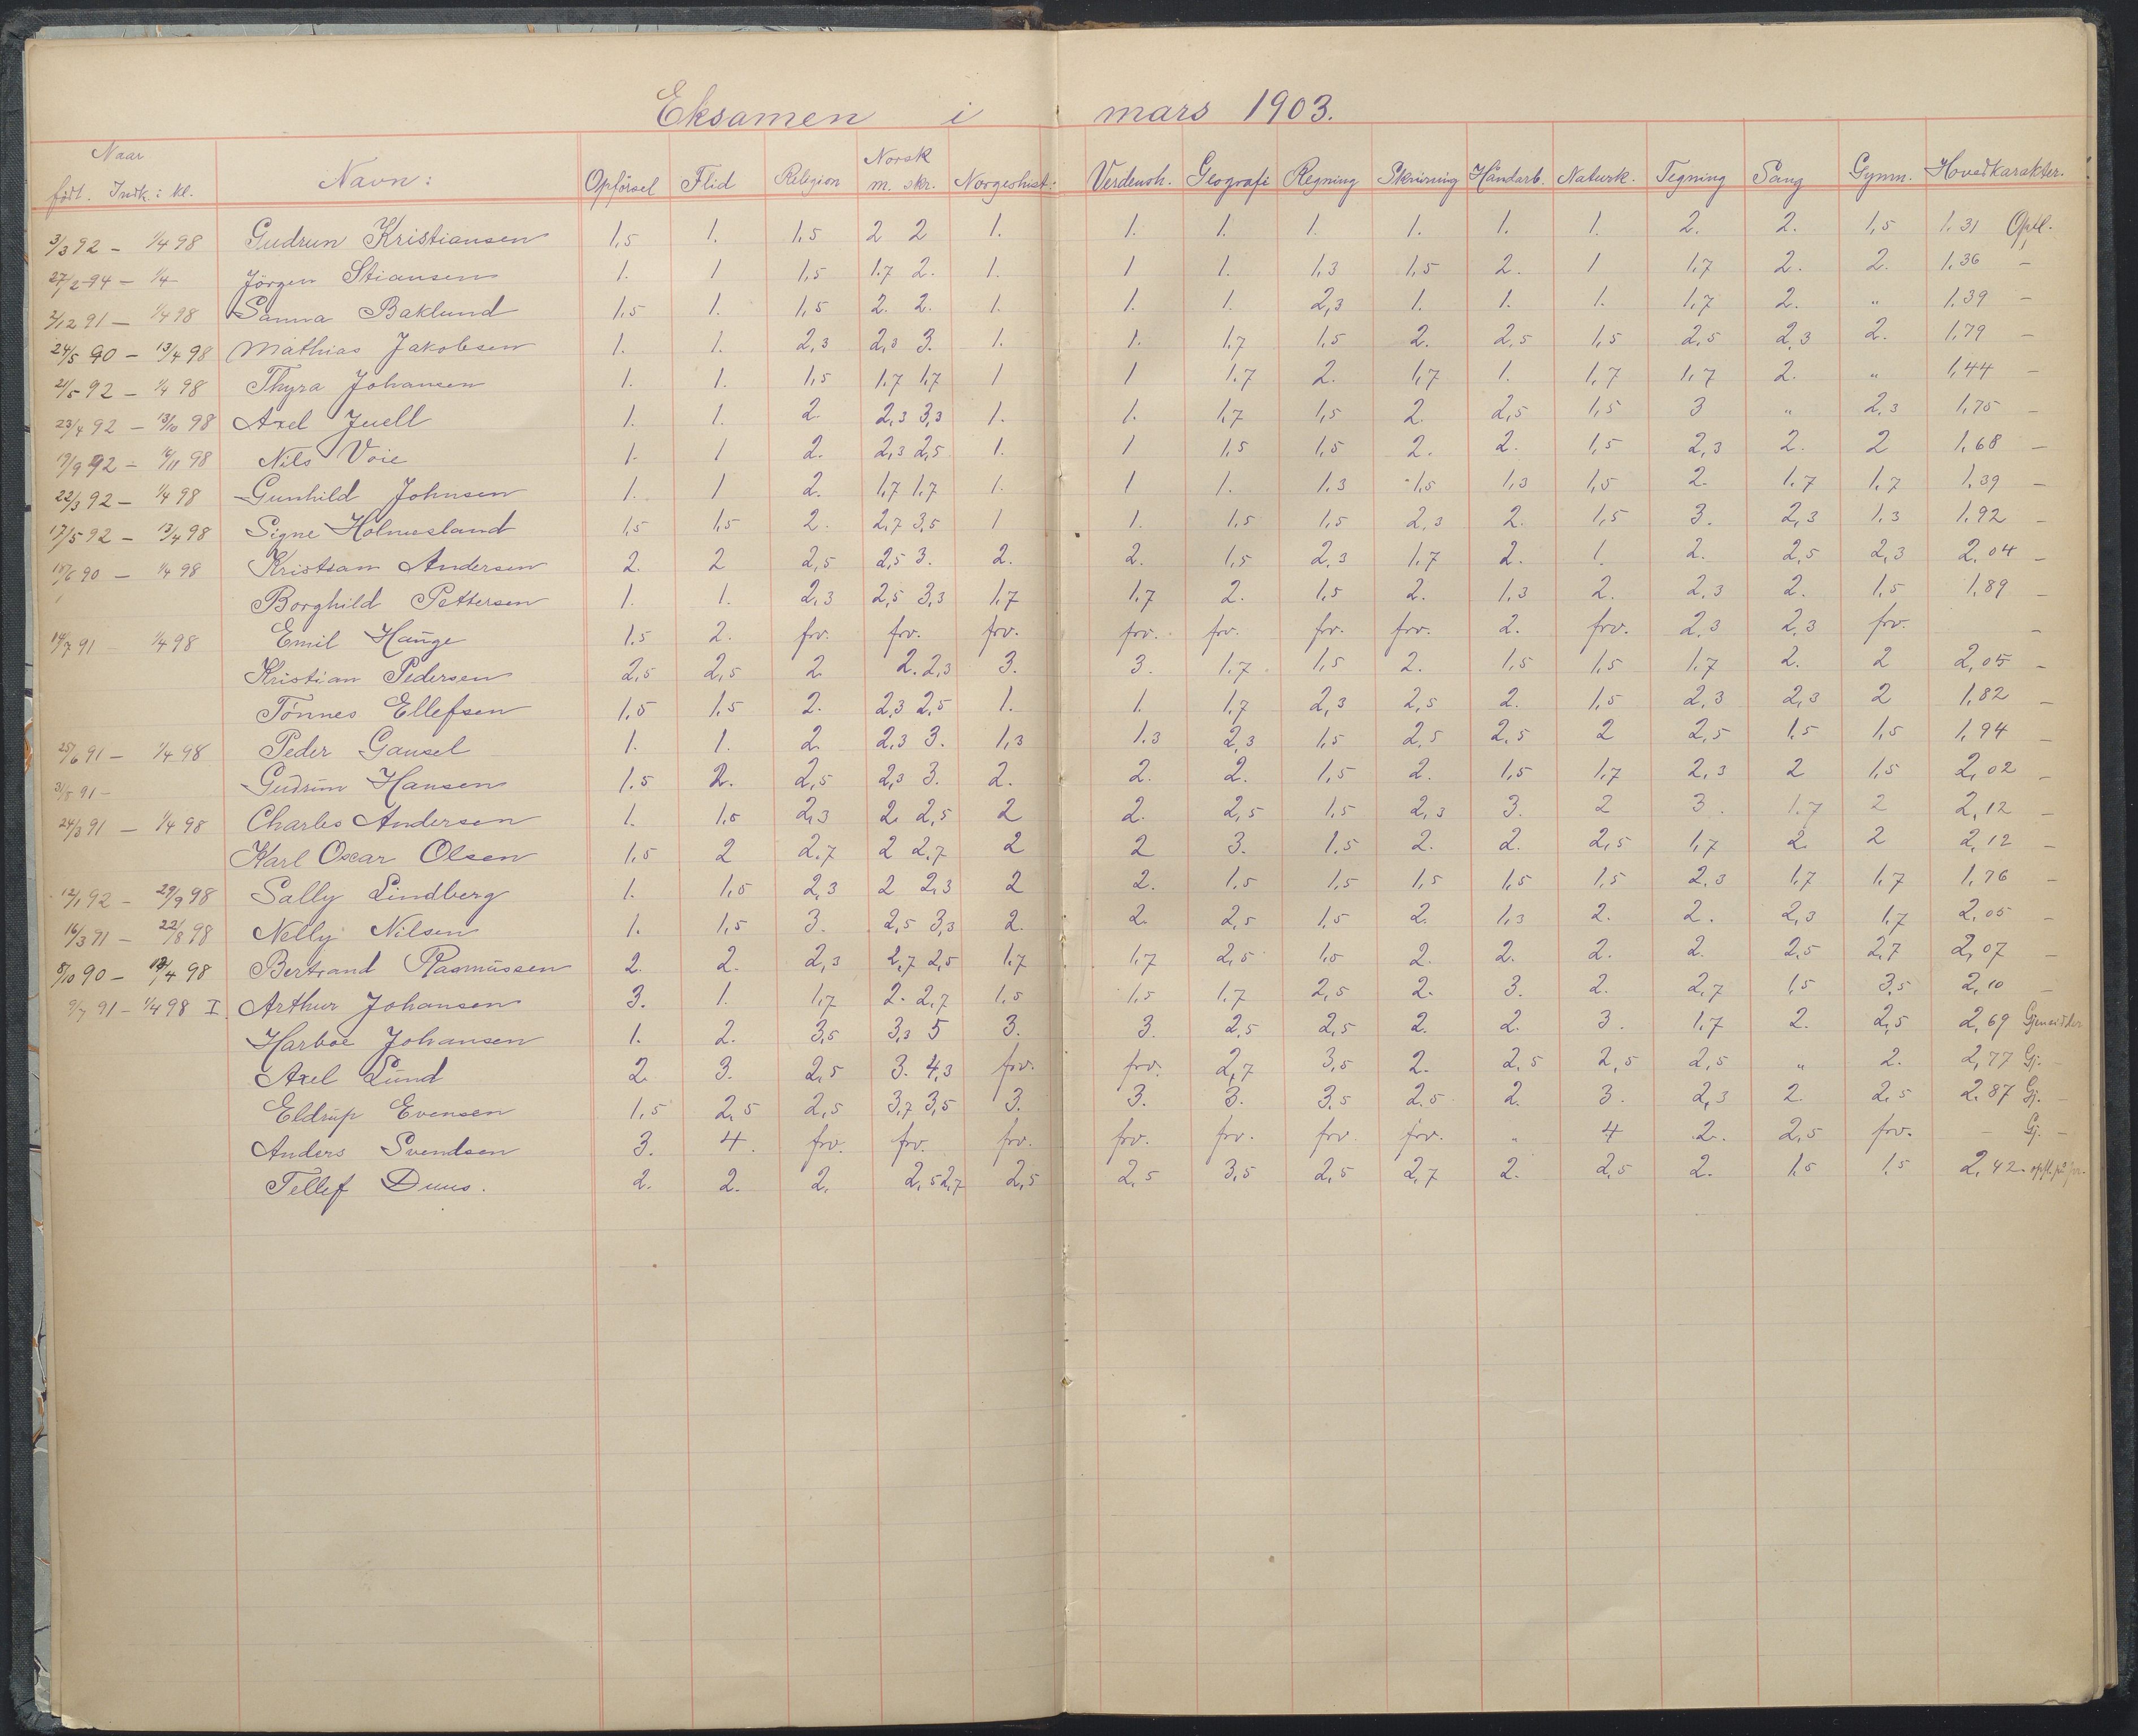 Eksamen i mars 1903.
Naar født. Indk. i kl. Navn: Opførsel Flid Religion Norsk m. skr. Norgeshist: Verdensh. Geografi Regning Skrivning Håndarb. Naturk. Tegning Sang Gymn. Hovedkarakter.
3/3 92 - 1/4 98 Gudrun Kristiansen 1,5 1. 1,5 2 2 1. 1. 1. 1. 1. 1. 1. 2. 2. 1,5 1,31 Opfl.
27/2 94 - 1/4 Jörgen Stiansen 1. 1 1,5 1,7 2. 1. 1 1. 1,3 1,5 2. 1 1,7 2. 2. 1,36 -
2/12 91 - 1/4 98 Sanna Baklund 1,5 1. 1,5 2. 2. 1. 1. 1. 2,3 1. 1. 1. 1,7 2. " 1,39 -
24/5 90 - 13/4 98 Mathias Jakobsen 1. 1. 2,3 2,3 3. 1. 1. 1,7 1,5 2. 2,5 1,5 2,5 2,3 2. 1,79 -
21/5 92 - 1/4 98 Thyra Johansen 1. 1. 1,5 1,7 1,7 1 1 1,7 2. 1,7 1. 1,7 1,7 2. " 1,44 -
23/4 92 - 13/10 98 Axel Juell 1. 1. 2. 2,3 3,3 1. 1. 1,7 1,5 2. 2,5 1,5 3 " 2,3 1,75 -
19/9 92 - 16/11 98 Nils Voie 1. 1 2. 2,3 2,5 1. 1 1,5 1,5 2. 2. 1,5 2,3 2. 2 1,68 -
22/3 92 - 1/4 98 Gunhild Johnsen 1. 1 2. 1,7 1,7 1. 1 1. 1,3 1,5 1,3 1,5 2. 1,7 1,7 1,39 -
17/5 92 - 13/4 98 Signe Holmesland 1,5 1,5 2. 2,7 3,5 1 1. 1,5 1,5 2,3 2. 1,5 3. 2,3 1,3 1,92 -
/6 90 - 1/4 98 Kristian Andersen 2. 2 2,5 2,5 3. 2. 2. 1,5 2,3 1,7 2. 1. 2. 2,5 2,3 2,04 -
Borghild Pettersen 1. 1. 2,3 2,5 3,3 1,7 1,7 2. 1,5 2. 1,3 2. 2,3 2. 1,5 1,89 -
14/7 91 1/4 98 Emil Hauge 1,5 2. frv. frv. frv. frv. frv. frv. frv. 2. frv. 2,3 2,3 frv. -
Kristian Pedersen 2,5 2,5 2 2. 2,3 3. 3. 1,7 1,5 2. 1,5 1,5 1,7 2. 2 2,05 -
Tönnes Ellefsen 1,5 1,5 2. 2,3 2,5 1. 1. 1,7 2,3 2,5 2. 1,5 2,3 2,3 2 1,82 -
25/6 91 - 1/4 98 Peder Gausel 1. 1. 2. 2,3 3. 1,3 1.3 2,3 1,5 2,5 2,5 2 2,5 1,5 1,5 1,94 -
31/5 91 - Gudrun Hansen 1.5 2. 2,5 2,3 3. 2. 2. 2. 1,5 2. 1,5 1,7 2,3 2 1,5 2,02 -
24/3 91 - 1/4 98 Charles Andersen 1. 1,5 2,3 2 2,5 2 2. 2,5 1,5 2,3 3. 2 3. 1.7 2 2,12 -
Karl Oscar Olsen 1,5 2 2.7 2 2,7 2 2 3. 1.5 2. 2. 2,5 1,7 2. 2 2,12 -
12/1 92 - 29/9 98 Sally Lindberg 1. 1,5 2,3 2 2,3 2 2. 1,5 1,5 1,5 1,5 1,5 2,3 1,7 1,7 1,76 -
16/3 91 - 22/8 98 Nelly Nilsen 1. 1,5 3. 2,5 3,3 2. 2. 2,5 1,5 2. 1,3 2. 2. 2,3 1,7 2,05 -
8/10 90 - 13/4 98 Bertrand Rasmussen 2. 2. 2,3 2,7 2,5 1.7 1,7 2,5 1,5 2. 2. 2. 2. 2,5 2,7 2,07 -
9/7 91 - 1/4 98 I. Arthur Johansen 3. 1. 1,7 2. 2,7 1,5 1,5 1,7 2,5 2. 3. 2. 2,7 1,5 3,5 2,10 -
Harboe Johansen 1. 2. 3,5 3,3 5 3. 3. 2,5 2,5 2. 2. 3. 1,7 2. 2,5 2,69
Axel Lund 2. 3. 2,5 3. 4,3 frv. frv. 2,7 3,5 2. 2,5 2,5 2,5 " 2. 2,77 Gj. -
Eldrup Evensen 1,5 2,5 2,5 3,7 3,5 3. 3. 3. 3,5 2.5 2. 3. 2,3 2. 2,5 2.87 Gj. -
Anders Svendsen 3. 4. frv. frv. frv. frv. frv. frv. frv. " 4 2. 2,5 frv. - Gj. -
Tellef Duus. 2. 2. 2. 2,5 2,7 2,5 2,5 3,5 2,5 2,7 2. 2,5 2. 1,5 1,5 2,42